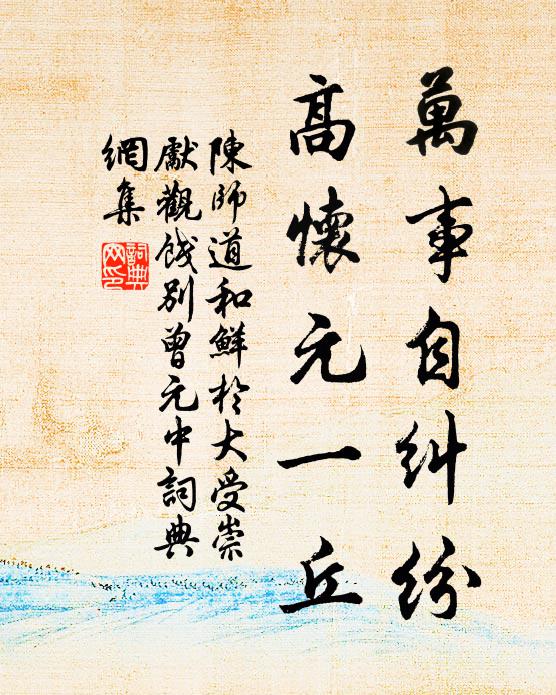 萬事自糾紛
高懷元一丘
陳師道和鮮於大受崇
獻觀餞別曾元中詞典
網集
詞典
网印